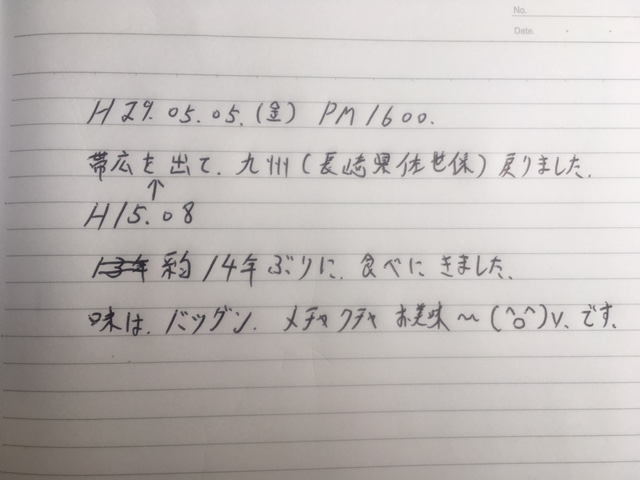 No.
Date
H29.05.05.(金) PM1600.
帯広を出て、九州(長崎県佐世保)戻りました.
↑
H15.08
約14年ぶりに、食べにきました、
味は、バツグン、メチャクチャ 美味~(^o^)v、です、